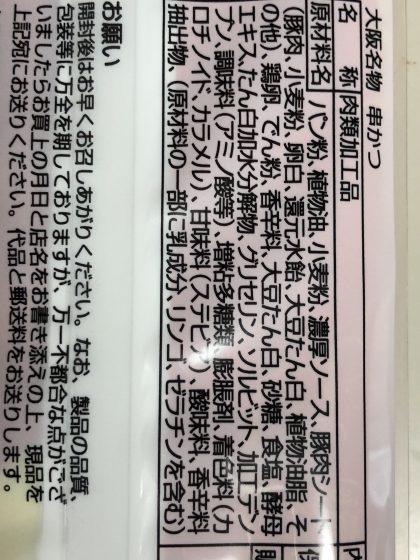 大阪名物 串かつ
名 称 肉類加工品
原材料名 パン粉、植物油、小麦粉、濃厚ソース、豚肉シート
(豚肉、小麦粉、卵白、還元水飴、大豆たん白、植物油脂、そ
の他)、鶏卵、でん粉、香辛料、大豆たん白、砂糖、食塩、酵母
エキス、たん白加水分解物、グリセリン、ソルビット、加工デン
プン、調味料(アミノ酸等)、増粘多糖類、膨脹剤、着色料(カ
ロチノイド、カラメル)、甘味料(ステビア)、酸味料、香辛料
抽出物、(原材料の一部に乳成分、リンゴ、ゼラチンを含む)
内
保
お願い
開封後はお早くお召しあがりください。なお、製品の品質、
包装等に万全を期しておりますが、万一不都合な点がござ
いましたらお買上の月日と店名をお書き添えの上、現品を
上記宛にお送りください。代品と郵送料をお送りします。